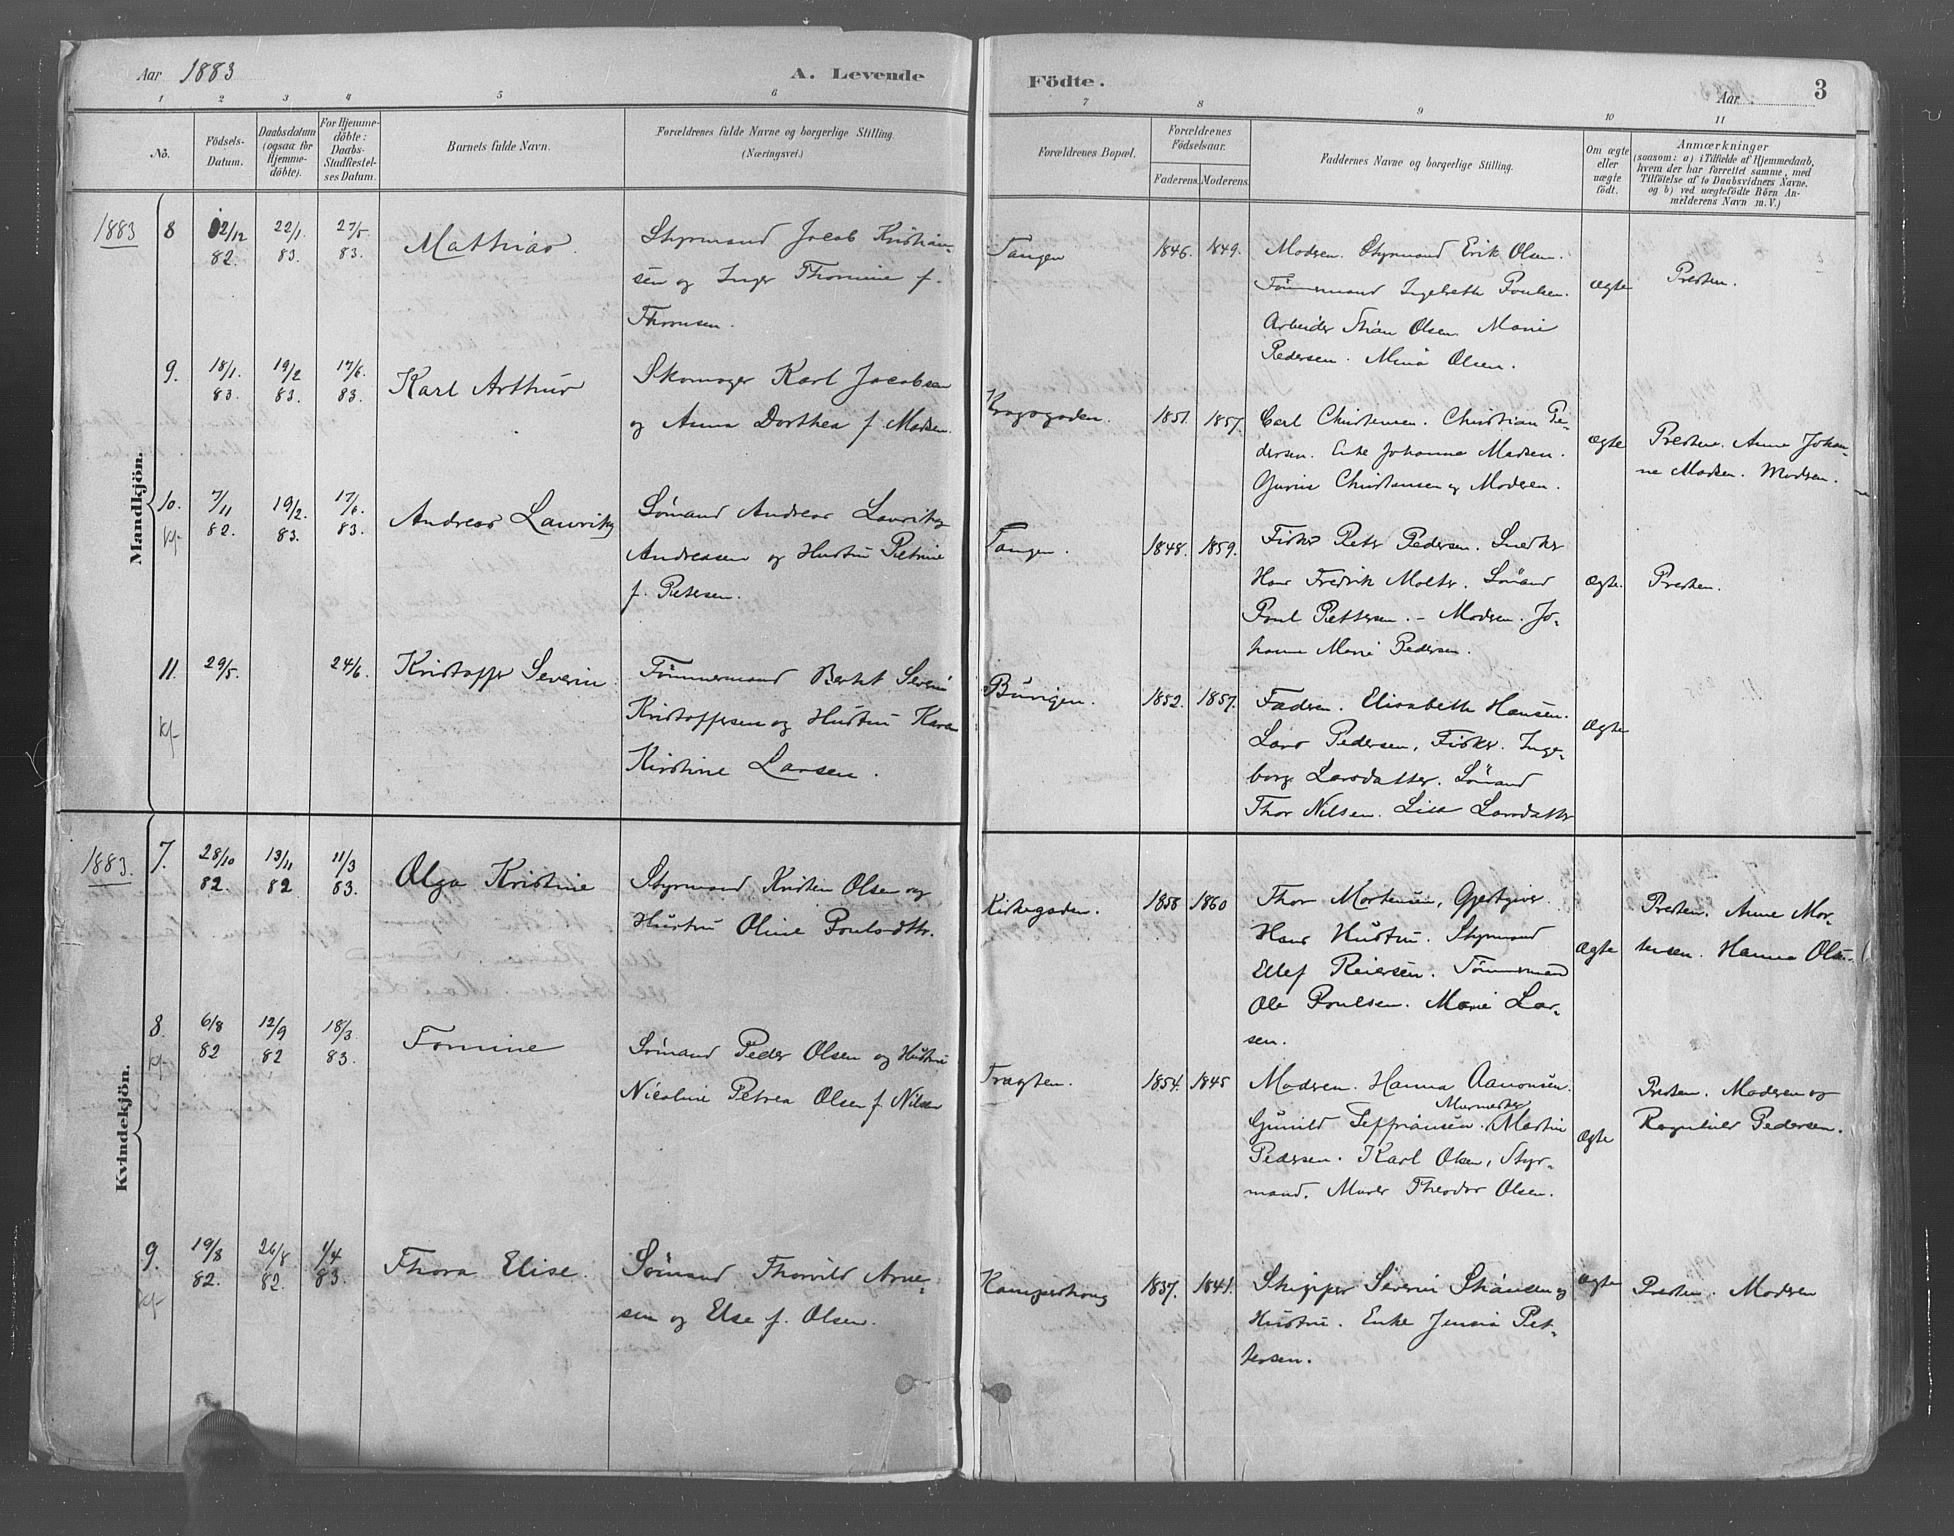 Aar 1883
A. Levende
Födte.
Aar
3
1
2
3
4
5
6
7
8
9
10
11
No.
Födsels-
Datum.
Daabsdatum
(ogsaa for
Hjemme-
döbte).
For Hjemme-
döbte:
Daabs-
Stadfæstel-
ses Datum.
Barnets fulde Navn.
Forældrenes fulde Navne og borgerlige Stilling.
(Næringsvei.)
Forældrenes Bopæl.
Forældrenes
Födselsaar.
Faderens.
Moderens.
Faddernes Navne og borgerlige Stilling.
Om ægte
eller
uægte
födt.
Anmærkninger
(saasom: a) i Tilfælde af Hjemmedaab,
hvem der har forrettet samme, med
Tilföielse af to Daabsvidners Navne.
og b) ved uægtefödte Börn An-
melderens Navn m. V.)
Mandkjön.
1883
8
2/12
82.
22/1.
83.
27/5.
83.
Mathias.
Styrmand Jacob Kristian-
sen og Inger Thomine f.
Thomsen.
Tangen
1846.
1849.
Modren. Styrmand Erik Olsen.
Tømmermand Ingebrette Poulsen.
Arbeider Stian Olsen Marie
Pedersen. Mina Olsen.
Ægte
Presten.
9.
18/1.
83.
19/2
83.
17/6.
83.
Karl Arthur
Skomager Karl Jacobsen
og Anna Dorthea f. Madsen.
Kragsgaden.
1851
1857.
Carl Christensen. Christian Pe-
dersen. Enke Johanna Madsen.
Gurine Christensen og Modren.
Ægte
Presten. Anne Johan-
ne Madsen. Modren.
10.
kf.
7/11
82.
19/2.
83.
17/6.
83.
Andreas Lauritz
Sømand Andreas Lauritz
Andreasen og Hustru Petrine
f. Petersen.
Tangen.
1848.
1859.
Fisker Peter Pedersen. Snedker
Hans Fredrik Molter. Sømand
Poul Pettersen. – Modren. Jo-
hanne Marie Pedersen.
Ægte.
Presten.
11.
kf.
29/5.
24/6.
Kristoffer Severin
Tømmermand Bertel Severin
Kristoffersen og Hustru Karen
Kirstine Larsen.
Burigen.
1852.
1857.
Fadren. Elisabeth Hansen.
Lars Pedersen, Fisker. Inge-
borg Larsdatter. Sømand
Thor Nilsen. Lise Larsdatter
Ægte
Kvindekjön.
1883.
7.
28/10
82.
13/11
82
11/3
83.
Olga Kristine
Styrmand Kristen Olsen og
Hustru Oline Poulsdtr.
Kirkegaden.
1858
1860
Thor Mortensen, Gjestgiver.
Hans Hustru. Styrmand
Ellef Reiersen. Tømmermand
Ole Poulsen. Marie Lar-
sen.
Ægte
Presten. Anne Mor-
tensen. Hanna Olsen.
8.
kf.
6/8
82
12/9
82
18/3
83.
Tomine
Sømand Peder Olsen og Hustru
Nicoline Petrea Olsen f. Nilsen
Tragten.
1854.
1845
Modren. Hanna Aanonsen.
Gunild Teffriansen. Murmester Martin
Pedersen. Karl Olsen, Styr-
mand. Murer Theodor Olsen.
Ægte
Presten. Modren og
Ragnhild Pedersen.
9.
kf.
19/8
82.
26/8
82.
1/4
83.
Thora Elise.
Sømand Thorvild Arne-
sen og Else f. Olsen.
Kamperhoug
1837.
1841.
Skipper Severin Stiansen og
Hustru. Enke Jensia Pet-
tersen.
Ægte
Presten. Modren